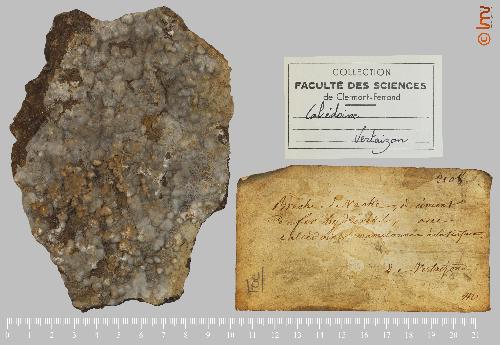 COLLECTION
FACULTÉ DES SCIENCES
de Clermont-Ferrand
Calcédoine
Vertaizon
Brèche de Wacke, à ciment
de fer hydraté, avec
calcédoine mamelonnée à la surface
de Vertaizon
0 1 2 3 4 5 6 7 8 9 10 11 12 13 14 15 16 17 18 19 20 21
lmv